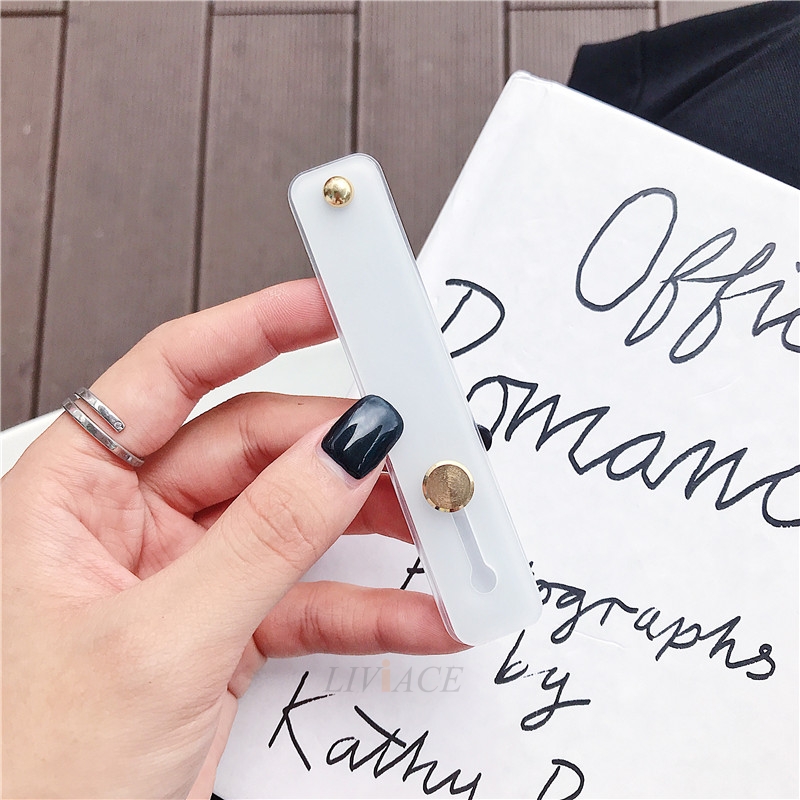 Offic
D
Romanc
ographs
by
Kathy R
LIVIACE